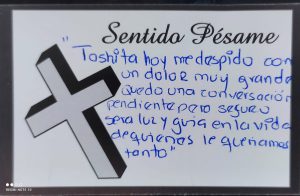 Sentido Pésame
"Toshita hoy me despido con
un dolor muy grande
quedo una conversación
pendiente pero seguro
sera luz y guia en la vida
de quienes le queriamos
tanto"